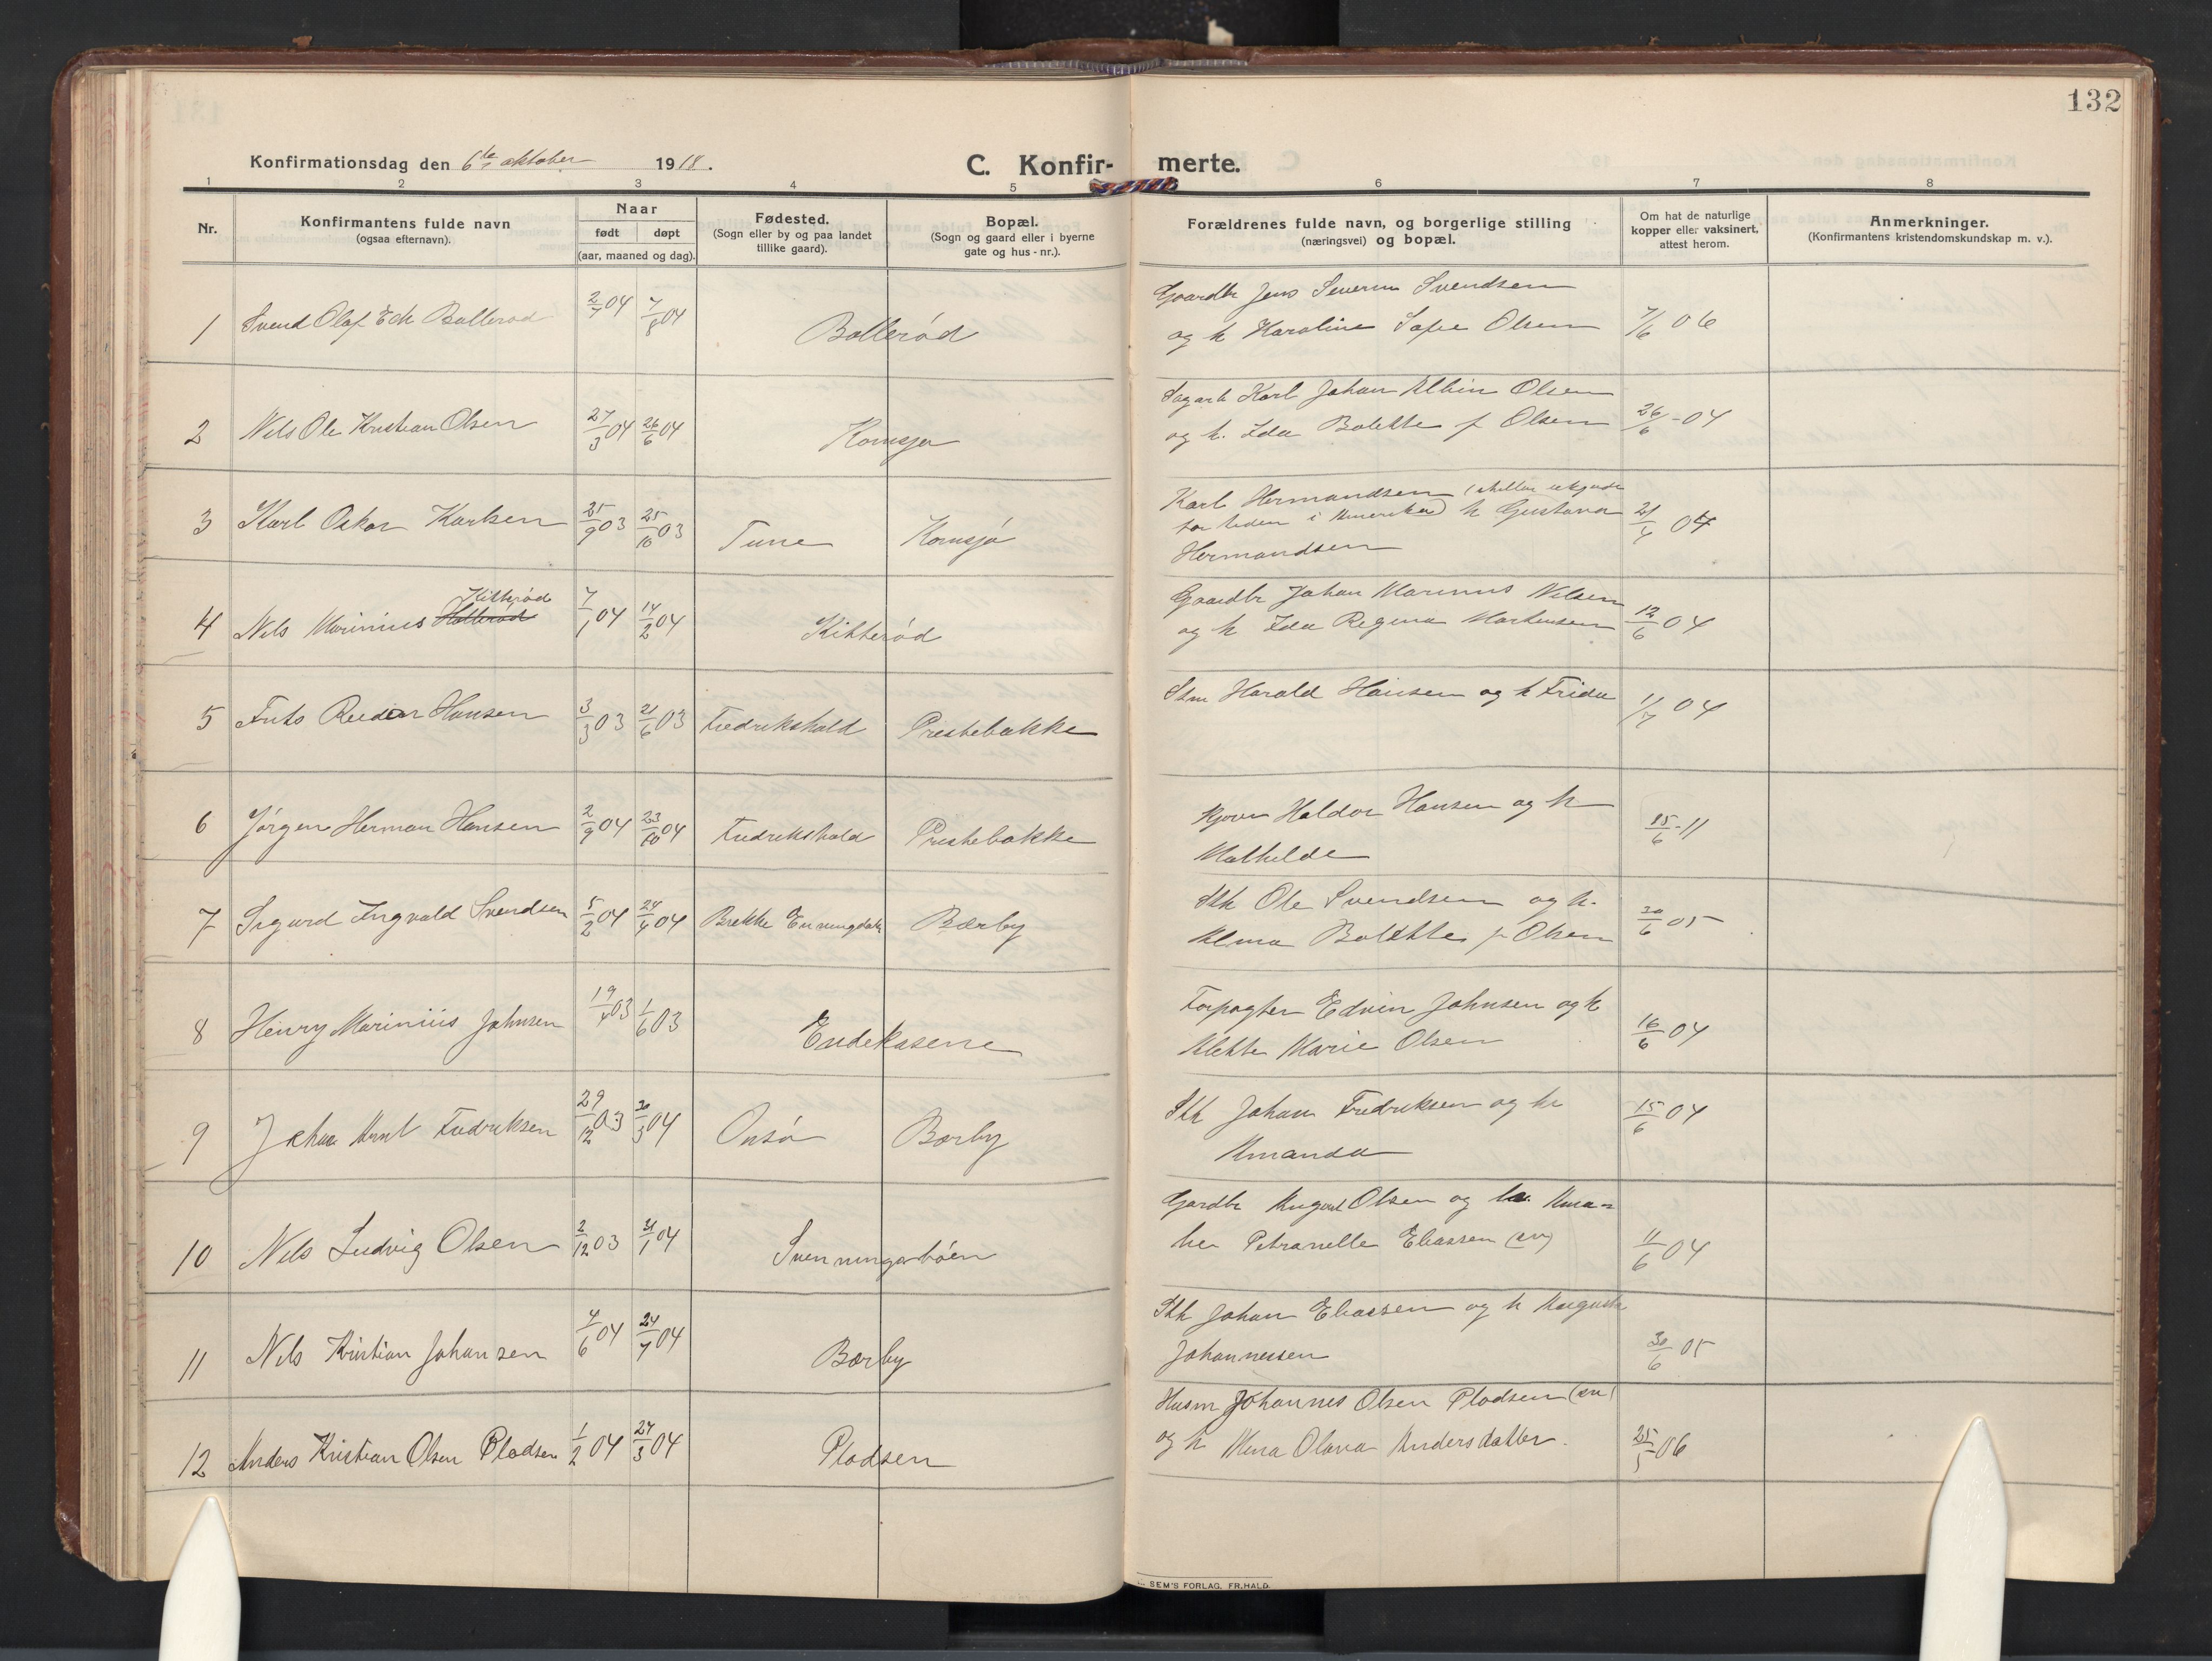 132
Konfirmationsdag den 6te oktober 1918.
C. Konfir- merte.
1 2 3 4 5 6 7 8
Nr.
Konfirmantens fulde navn
(ogsaa efternavn).
Naar
født døpt
(aar, maaned og dag).
Fødested.
(Sogn eller by og paa landet
tillike gaard).
Bopæl.
(Sogn og gaard eller i byerne
gate og hus-nr.).
Forældrenes fulde navn, og borgerlige stilling
(næringsvei) og bopæl.
Om hat de naturlige
kopper eller vaksinert,
attest herom.
Anmerkninger.
(Konfirmantens kristendomskundskap m. v.).
Gaardbr Jens Severin Svendsen
1 Svend Olaf Eck Bollerød 2/7 04 7/8 04 Bollerød
og h Karoline Sofie Olsen 7/6 06
Sagarb Karl Johan Albin Olsen
2 Nils Ole Kristian Olsen 27/3 04 26/6 04 Kornsjø
og h. Ida Bolette f Olsen 26/6-04
Karl Hermandsen
3 Karl Oskar Karlsen 25/9 03 25/10 03 Tune Kornsjø
for tiden i Amerika) h Gustava 04
Hermandsen
Gaardbr Johan Marinus Nilsen
4 Nils Marinius Hallerød Kitterød 7/1 04 14/2 04 Kitterød
og h Ida Regina Martinsen 12/6 04
5 Frits Reidar Hansen 3/3 03 21/6 03 Fredrikshald Prestebakke
Stm Harald Hansen og h Frida 1/7 04
6 Jørgen Herman Hansen 2/9 04 23/10 04 Fredrikshald Prestebakke
Haldor Hansen og h
Mathilde 25/6-11
7 Sigurd Ingvald Svendsen 5/2 04 24/4 04 Brekke Enningdalen Bærby
Stk Ole Svendsen og h.
Alma Bolette f Olsen 30/6 05
8 Henry Marinius Johnsen 19/4 03 1/6 03 Endekasene
Forpagter Edvin Johnsen og h
Alette Marie Olsen 16/6 04
9 Johan Arnt Fredriksen 29/12 03 20/3 04 Onsø Bærby
Stk Johan Fredriksen og h
Amanda 15/6 04
10 Nils Ludvig Olsen 2/12 03 31/1 04 Svenningsbøen
Gardbr August Olsen og h. Ama-
lie Petranelle Eliassen (sv) 11/6 04
11 Nils Kristian Johansen 4/6 04 24/7 04 Bærby
Stk Johan Eliassen og h Augusta
Johannessen 30/6 05
12 Anders Kristian Olsen Plodsen 1/2 04 27/3 04 Plodsen
Husm Johannes Olsen Plodsen (sv)
og h Alma Olava Andersdatter. 25/5 06
SEM'S FORLAG, FR.HALD.